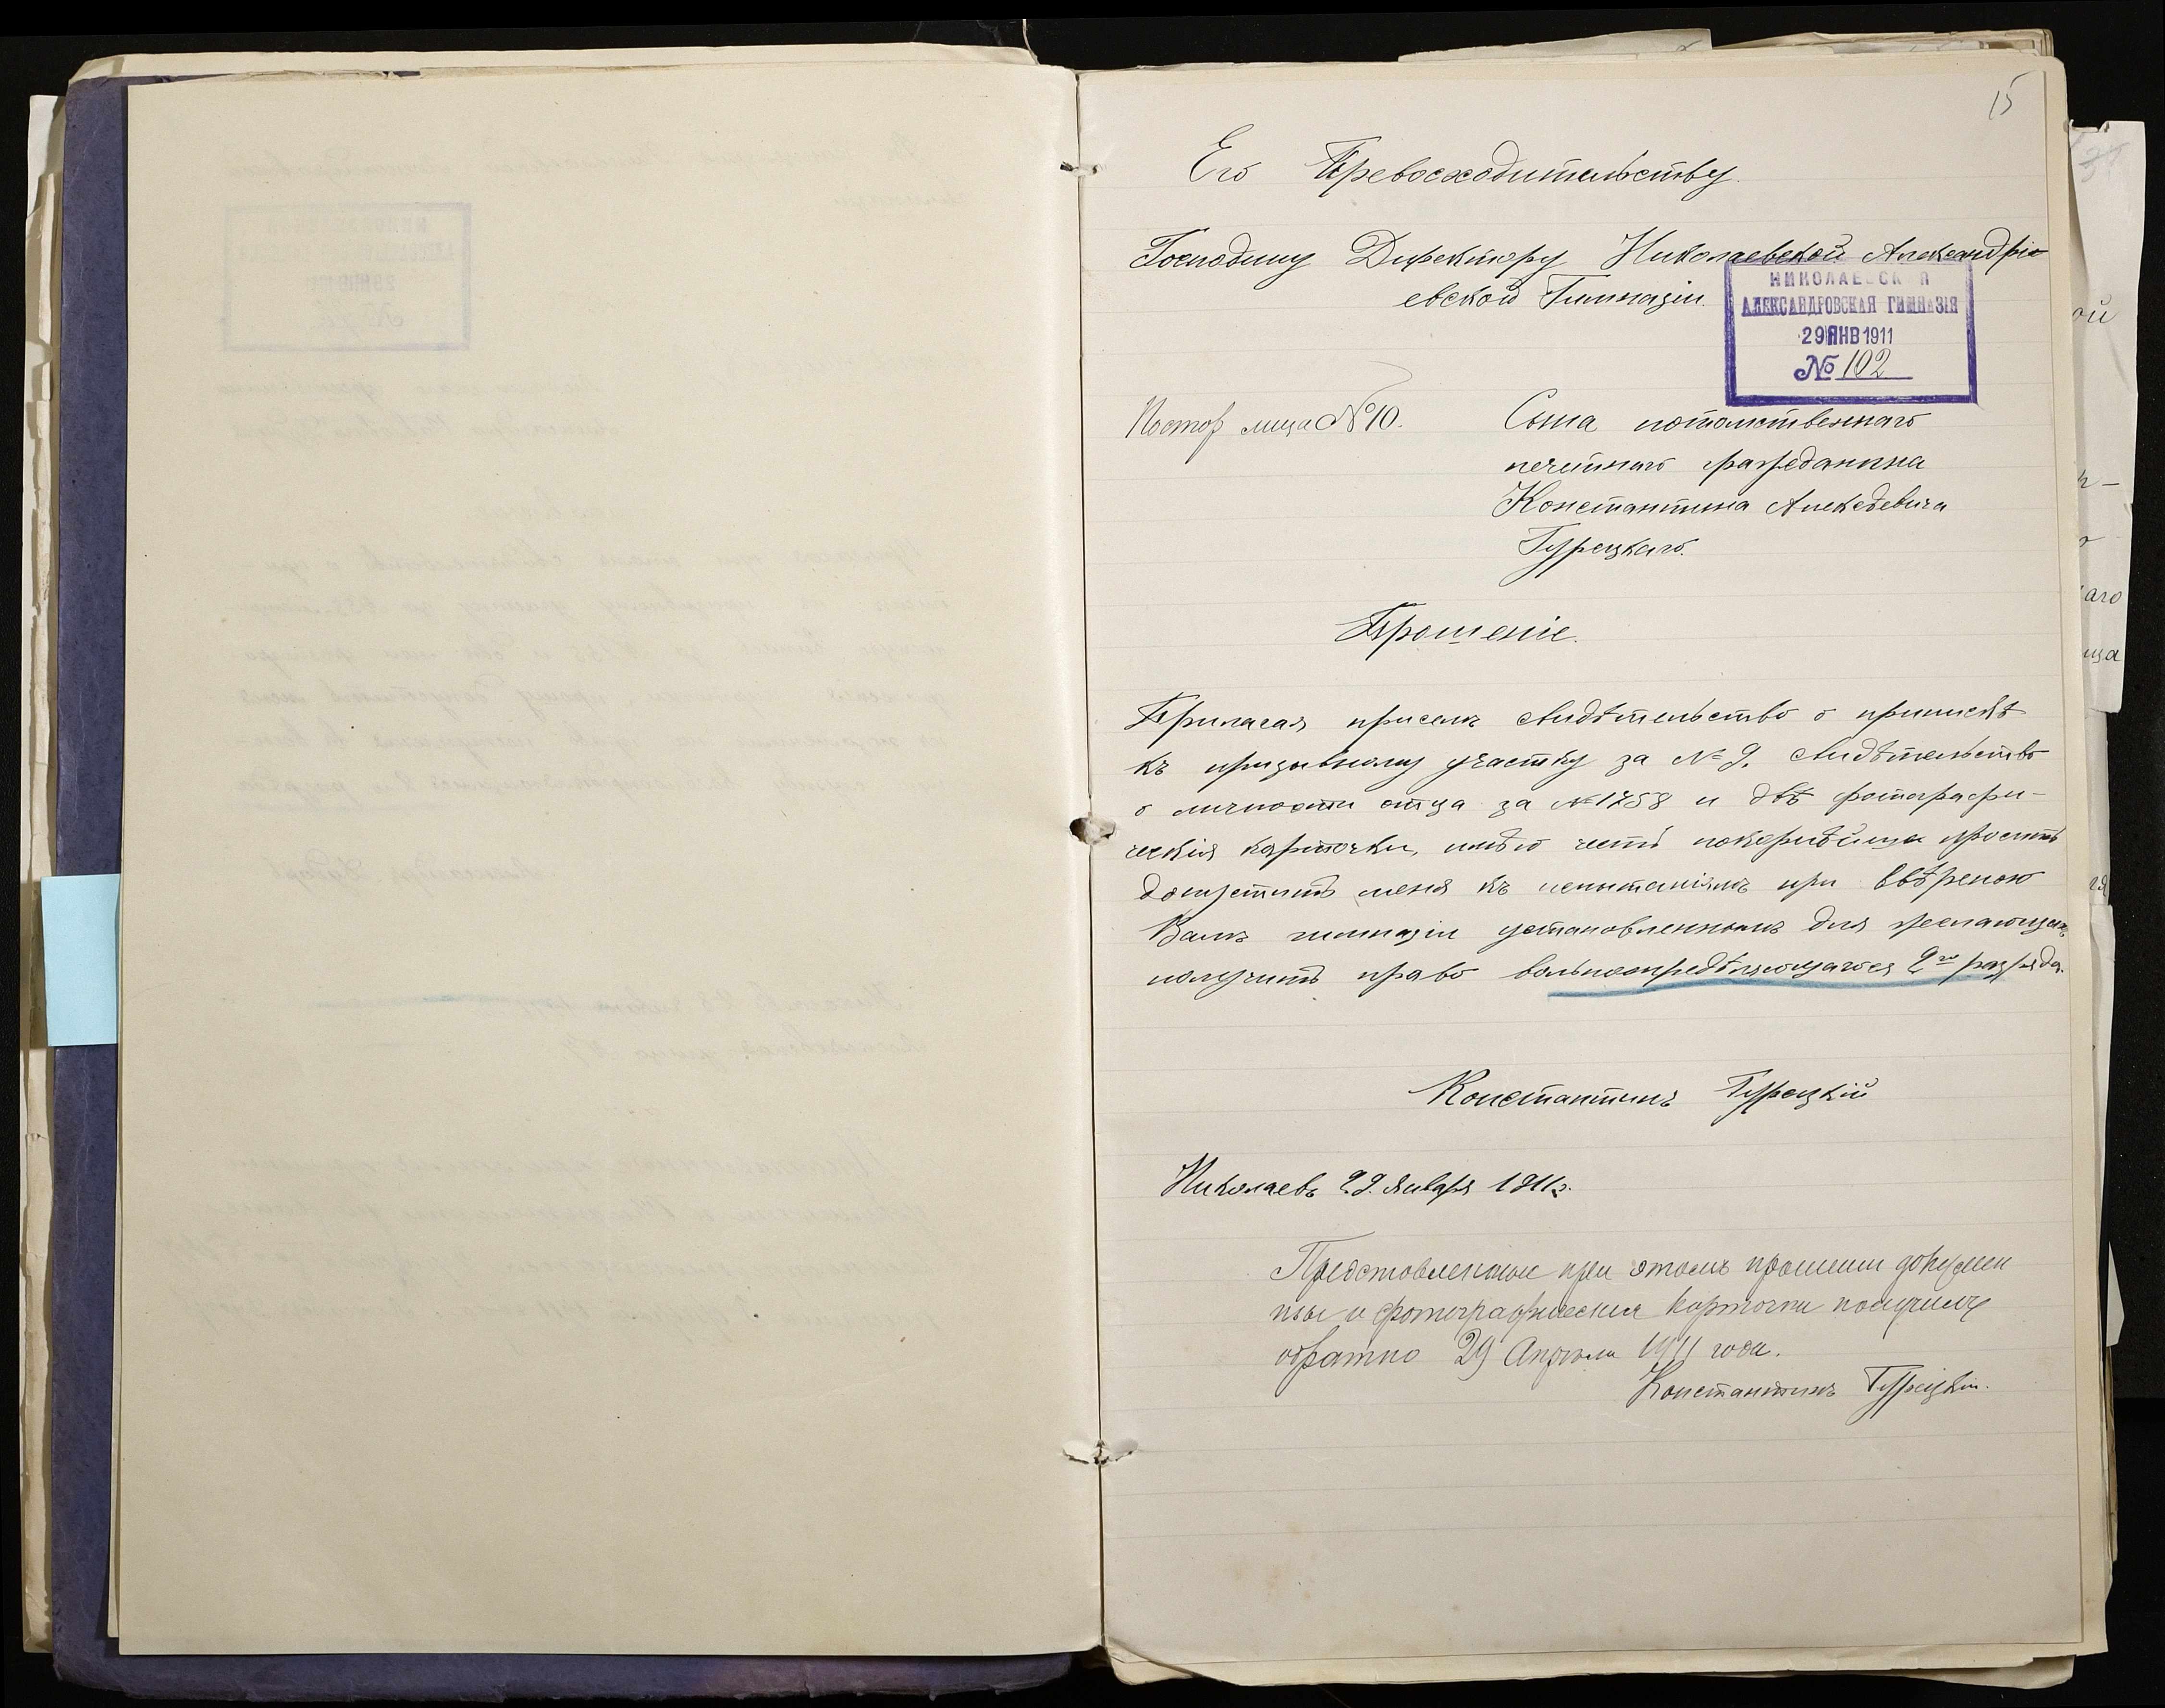 15
Его Превосходительству.
Господину Директору Николаевской Александрiо
евской Гимназiи.
НИКОЛАЕВСКАЯ
АЛЕКСАНДРОВСКАЯ ГИМНАЗIЯ
29 ЯНВ 1911
№ 102
Постор лица № 10.
Сына потомственнаго
почетнаго гражданина
Константина Алексѣевича
Турецкаго.
Прошенiе.
Прилагая присемъ свидѣтельство о припискѣ
къ призывному участку за № 9, свидѣтельство
о личности отца за № 1758 и двѣ фотографи-
ческiя карточки, имѣю честь покорнѣйше просить
допустить меня къ испытанiямъ при ввѣреной
Вамъ гимназiи установленнымъ для желающихъ
получить право вольноопредѣляющагося 2го разряда.
Константинъ Турецкiй
Николаевъ 29 Января 1911 г.
Представленные при этомъ прошении докумен
ты и фотографическия карточки получилъ
обратно 29 Апрѣля 1911 года.
Константинъ Турецкiй.